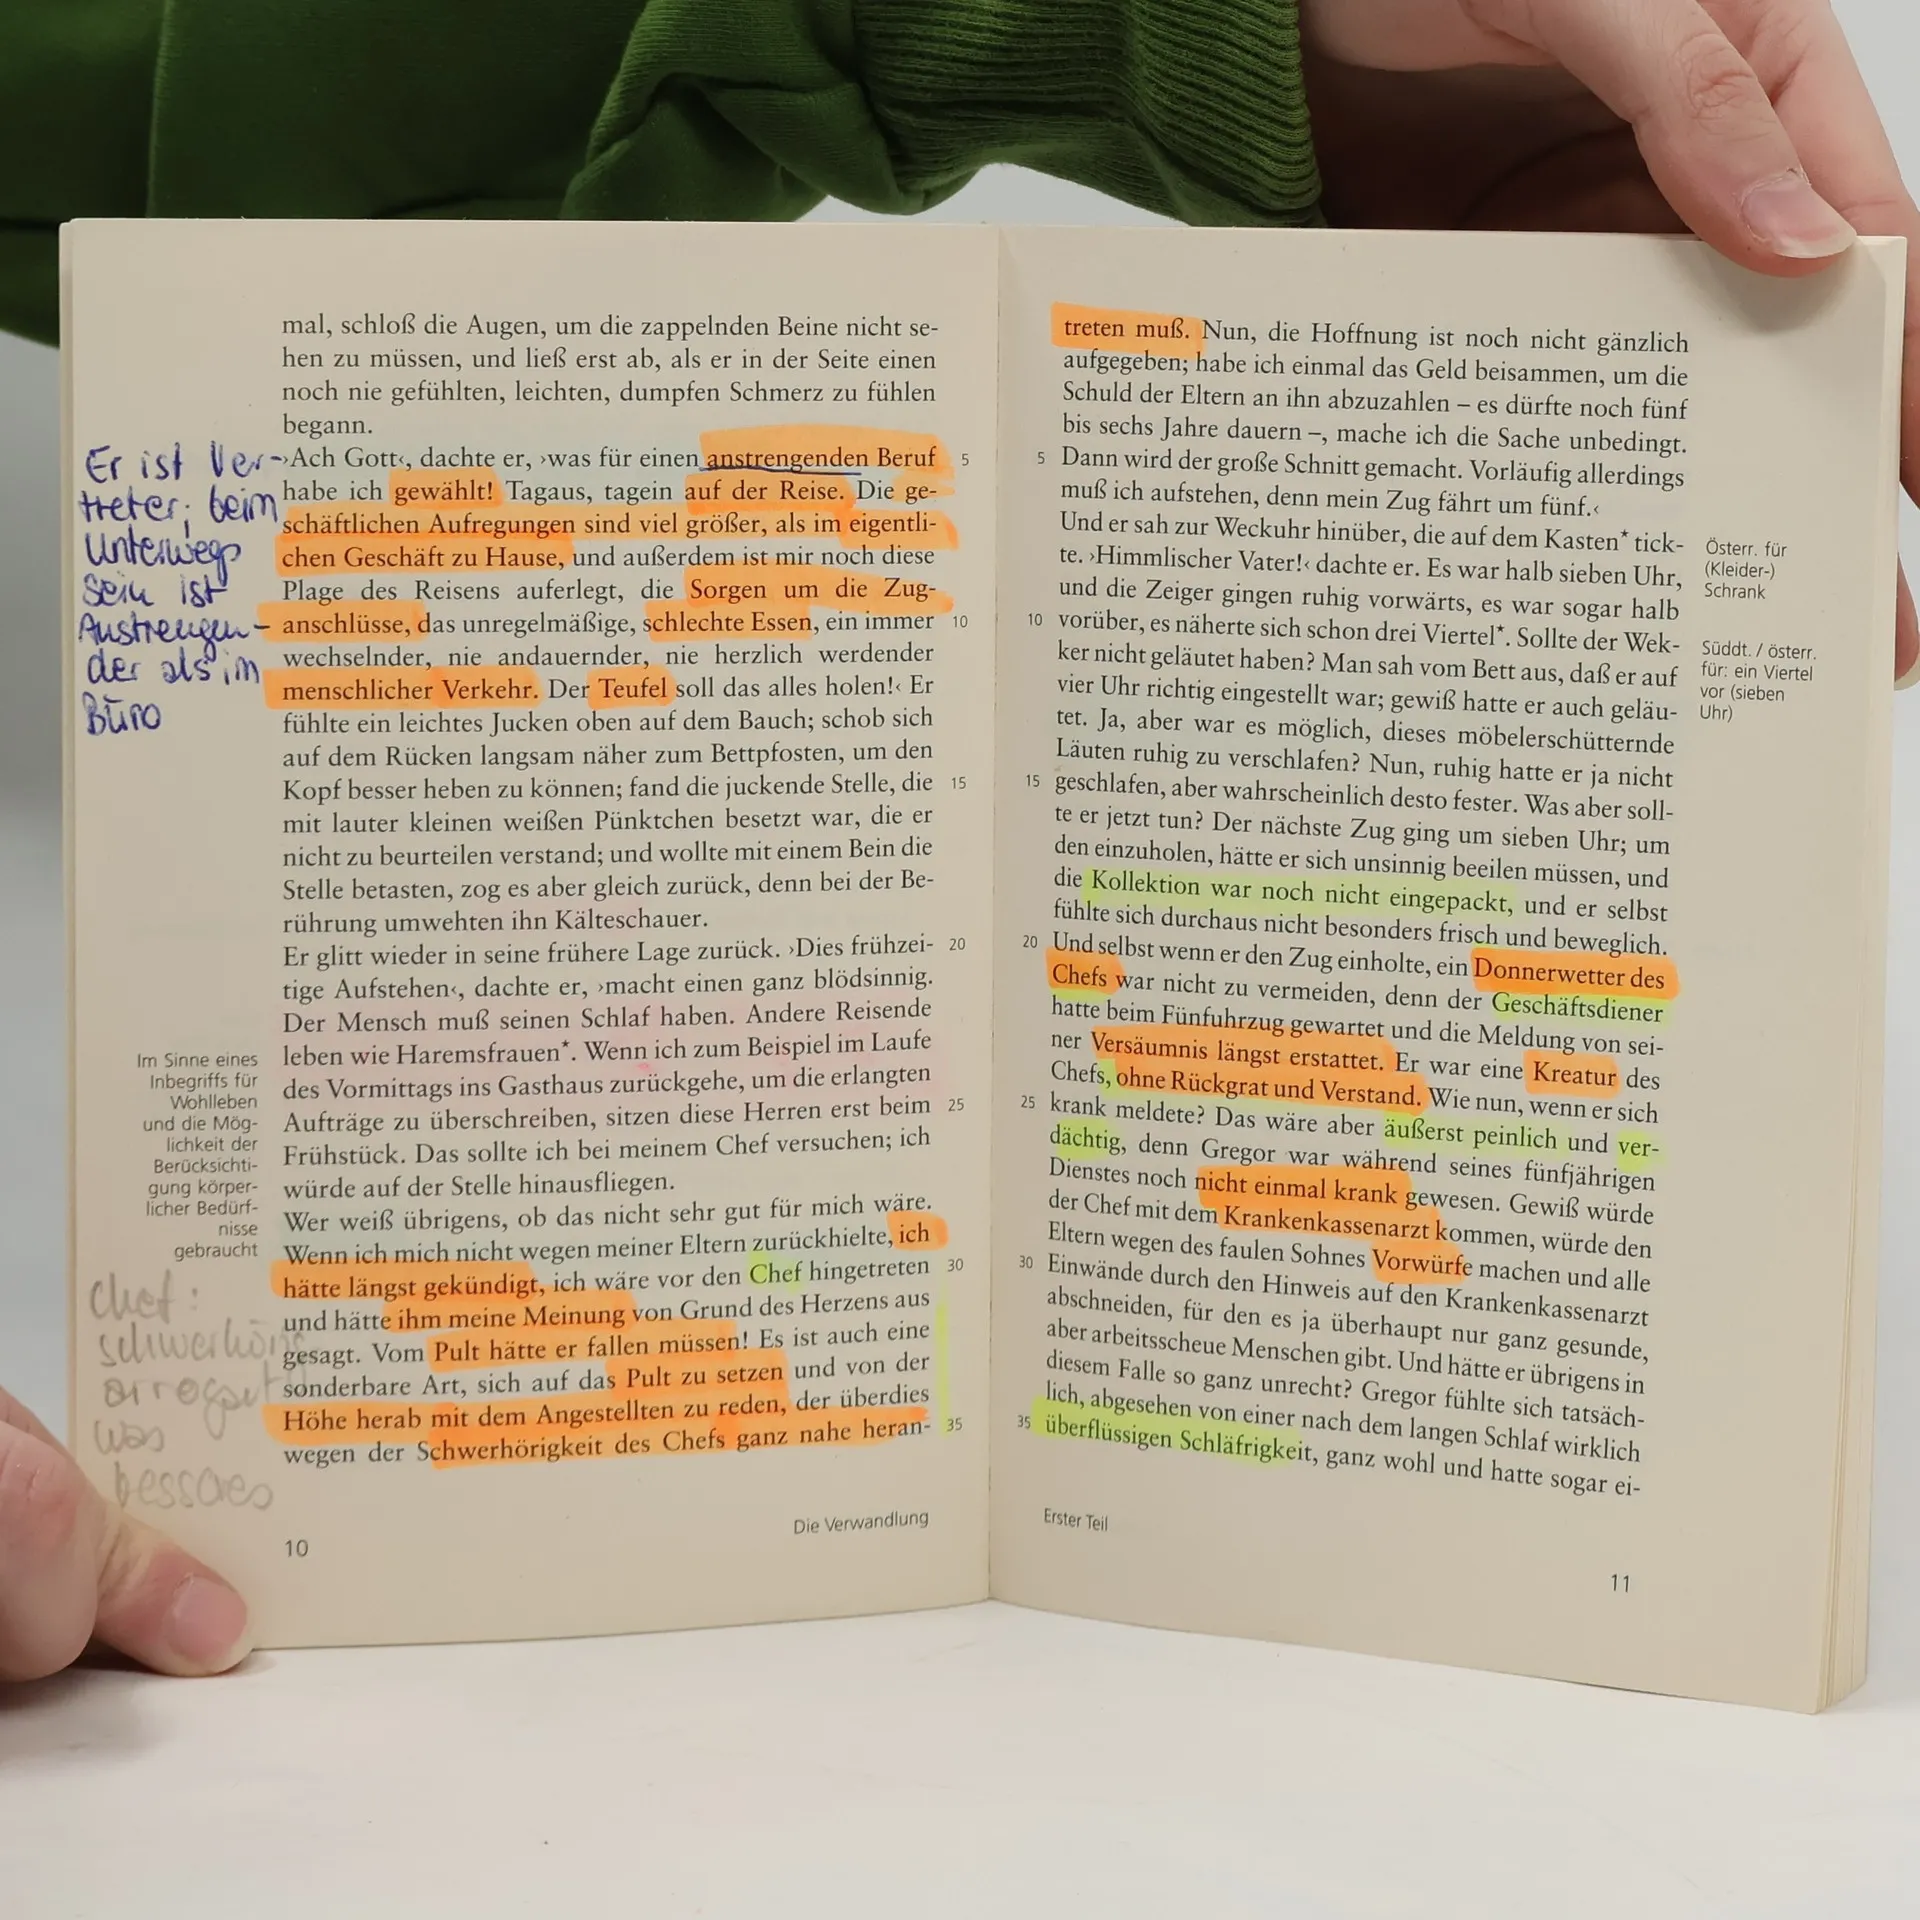 mal, schloß die Augen, um die zappelnden Beine nicht se-
hen zu müssen, und ließ erst ab, als er in der Seite einen
noch nie gefühlten, leichten, dumpfen Schmerz zu fühlen
begann.
›Ach Gott‹, dachte er, ›was für einen anstrengenden Beruf 5
habe ich gewählt! Tagaus, tagein auf der Reise. Die ge-
schäftlichen Aufregungen sind viel größer, als im eigentli-
chen Geschäft zu Hause, und außerdem ist mir noch diese
Plage des Reisens auferlegt, die Sorgen um die Zug-
anschlüsse, das unregelmäßige, schlechte Essen, ein immer 10
wechselnder, nie andauernder, nie herzlich werdender
menschlicher Verkehr. Der Teufel soll das alles holen!‹ Er
fühlte ein leichtes Jucken oben auf dem Bauch; schob sich
auf dem Rücken langsam näher zum Bettpfosten, um den
Kopf besser heben zu können; fand die juckende Stelle, die 15
mit lauter kleinen weißen Pünktchen besetzt war, die er
nicht zu beurteilen verstand; und wollte mit einem Bein die
Stelle betasten, zog es aber gleich zurück, denn bei der Be-
rührung umwehten ihn Kälteschauer.
Er glitt wieder in seine frühere Lage zurück. ›Dies frühzei- 20
tige Aufstehen‹, dachte er, ›macht einen ganz blödsinnig.
Der Mensch muß seinen Schlaf haben. Andere Reisende
leben wie Haremsfrauen*. Wenn ich zum Beispiel im Laufe
des Vormittags ins Gasthaus zurückgehe, um die erlangten
Aufträge zu überschreiben, sitzen diese Herren erst beim 25
Frühstück. Das sollte ich bei meinem Chef versuchen; ich
würde auf der Stelle hinausfliegen.
Wer weiß übrigens, ob das nicht sehr gut für mich wäre.
Wenn ich mich nicht wegen meiner Eltern zurückhielte, ich
hätte längst gekündigt, ich wäre vor den Chef hingetreten 30
und hätte ihm meine Meinung von Grund des Herzens aus
gesagt. Vom Pult hätte er fallen müssen! Es ist auch eine
sonderbare Art, sich auf das Pult zu setzen und von der
Höhe herab mit dem Angestellten zu reden, der überdies
wegen der Schwerhörigkeit des Chefs ganz nahe heran- 35
Er ist Ver-
treter; beim
Unterwegs
sein ist
Anstrengen-
der als im
Büro
Im Sinne eines
Inbegriffs für
Wohlleben
und die Mög-
lichkeit der
Berücksichti-
gung körper-
licher Bedürf-
nisse
gebraucht
Chef:
schwerhörig
arrogant
was
besseres
10
Die Verwandlung
treten muß. Nun, die Hoffnung ist noch nicht gänzlich
aufgegeben; habe ich einmal das Geld beisammen, um die
Schuld der Eltern an ihn abzuzahlen – es dürfte noch fünf
bis sechs Jahre dauern –, mache ich die Sache unbedingt.
5 Dann wird der große Schnitt gemacht. Vorläufig allerdings
muß ich aufstehen, denn mein Zug fährt um fünf.‹
Und er sah zur Weckuhr hinüber, die auf dem Kasten* tick-
te. ›Himmlischer Vater!‹ dachte er. Es war halb sieben Uhr,
und die Zeiger gingen ruhig vorwärts, es war sogar halb
10 vorüber, es näherte sich schon drei Viertel*. Sollte der Wek-
ker nicht geläutet haben? Man sah vom Bett aus, daß er auf
vier Uhr richtig eingestellt war; gewiß hatte er auch geläu-
tet. Ja, aber war es möglich, dieses möbelerschütternde
Läuten ruhig zu verschlafen? Nun, ruhig hatte er ja nicht
15 geschlafen, aber wahrscheinlich desto fester. Was aber soll-
te er jetzt tun? Der nächste Zug ging um sieben Uhr; um
den einzuholen, hätte er sich unsinnig beeilen müssen, und
die Kollektion war noch nicht eingepackt, und er selbst
fühlte sich durchaus nicht besonders frisch und beweglich.
20 Und selbst wenn er den Zug einholte, ein Donnerwetter des
Chefs war nicht zu vermeiden, denn der Geschäftsdiener
hatte beim Fünfuhrzug gewartet und die Meldung von sei-
ner Versäumnis längst erstattet. Er war eine Kreatur des
Chefs, ohne Rückgrat und Verstand. Wie nun, wenn er sich
25 krank meldete? Das wäre aber äußerst peinlich und ver-
dächtig, denn Gregor war während seines fünfjährigen
Dienstes noch nicht einmal krank gewesen. Gewiß würde
der Chef mit dem Krankenkassenarzt kommen, würde den
Eltern wegen des faulen Sohnes Vorwürfe machen und alle
30 Einwände durch den Hinweis auf den Krankenkassenarzt
abschneiden, für den es ja überhaupt nur ganz gesunde,
aber arbeitsscheue Menschen gibt. Und hätte er übrigens in
diesem Falle so ganz unrecht? Gregor fühlte sich tatsäch-
lich, abgesehen von einer nach dem langen Schlaf wirklich
35 überflüssigen Schläfrigkeit, ganz wohl und hatte sogar ei-
Österr. für
(Kleider-)
Schrank
Süddt. / österr.
für: ein Viertel
vor (sieben
Uhr)
Erster Teil
11